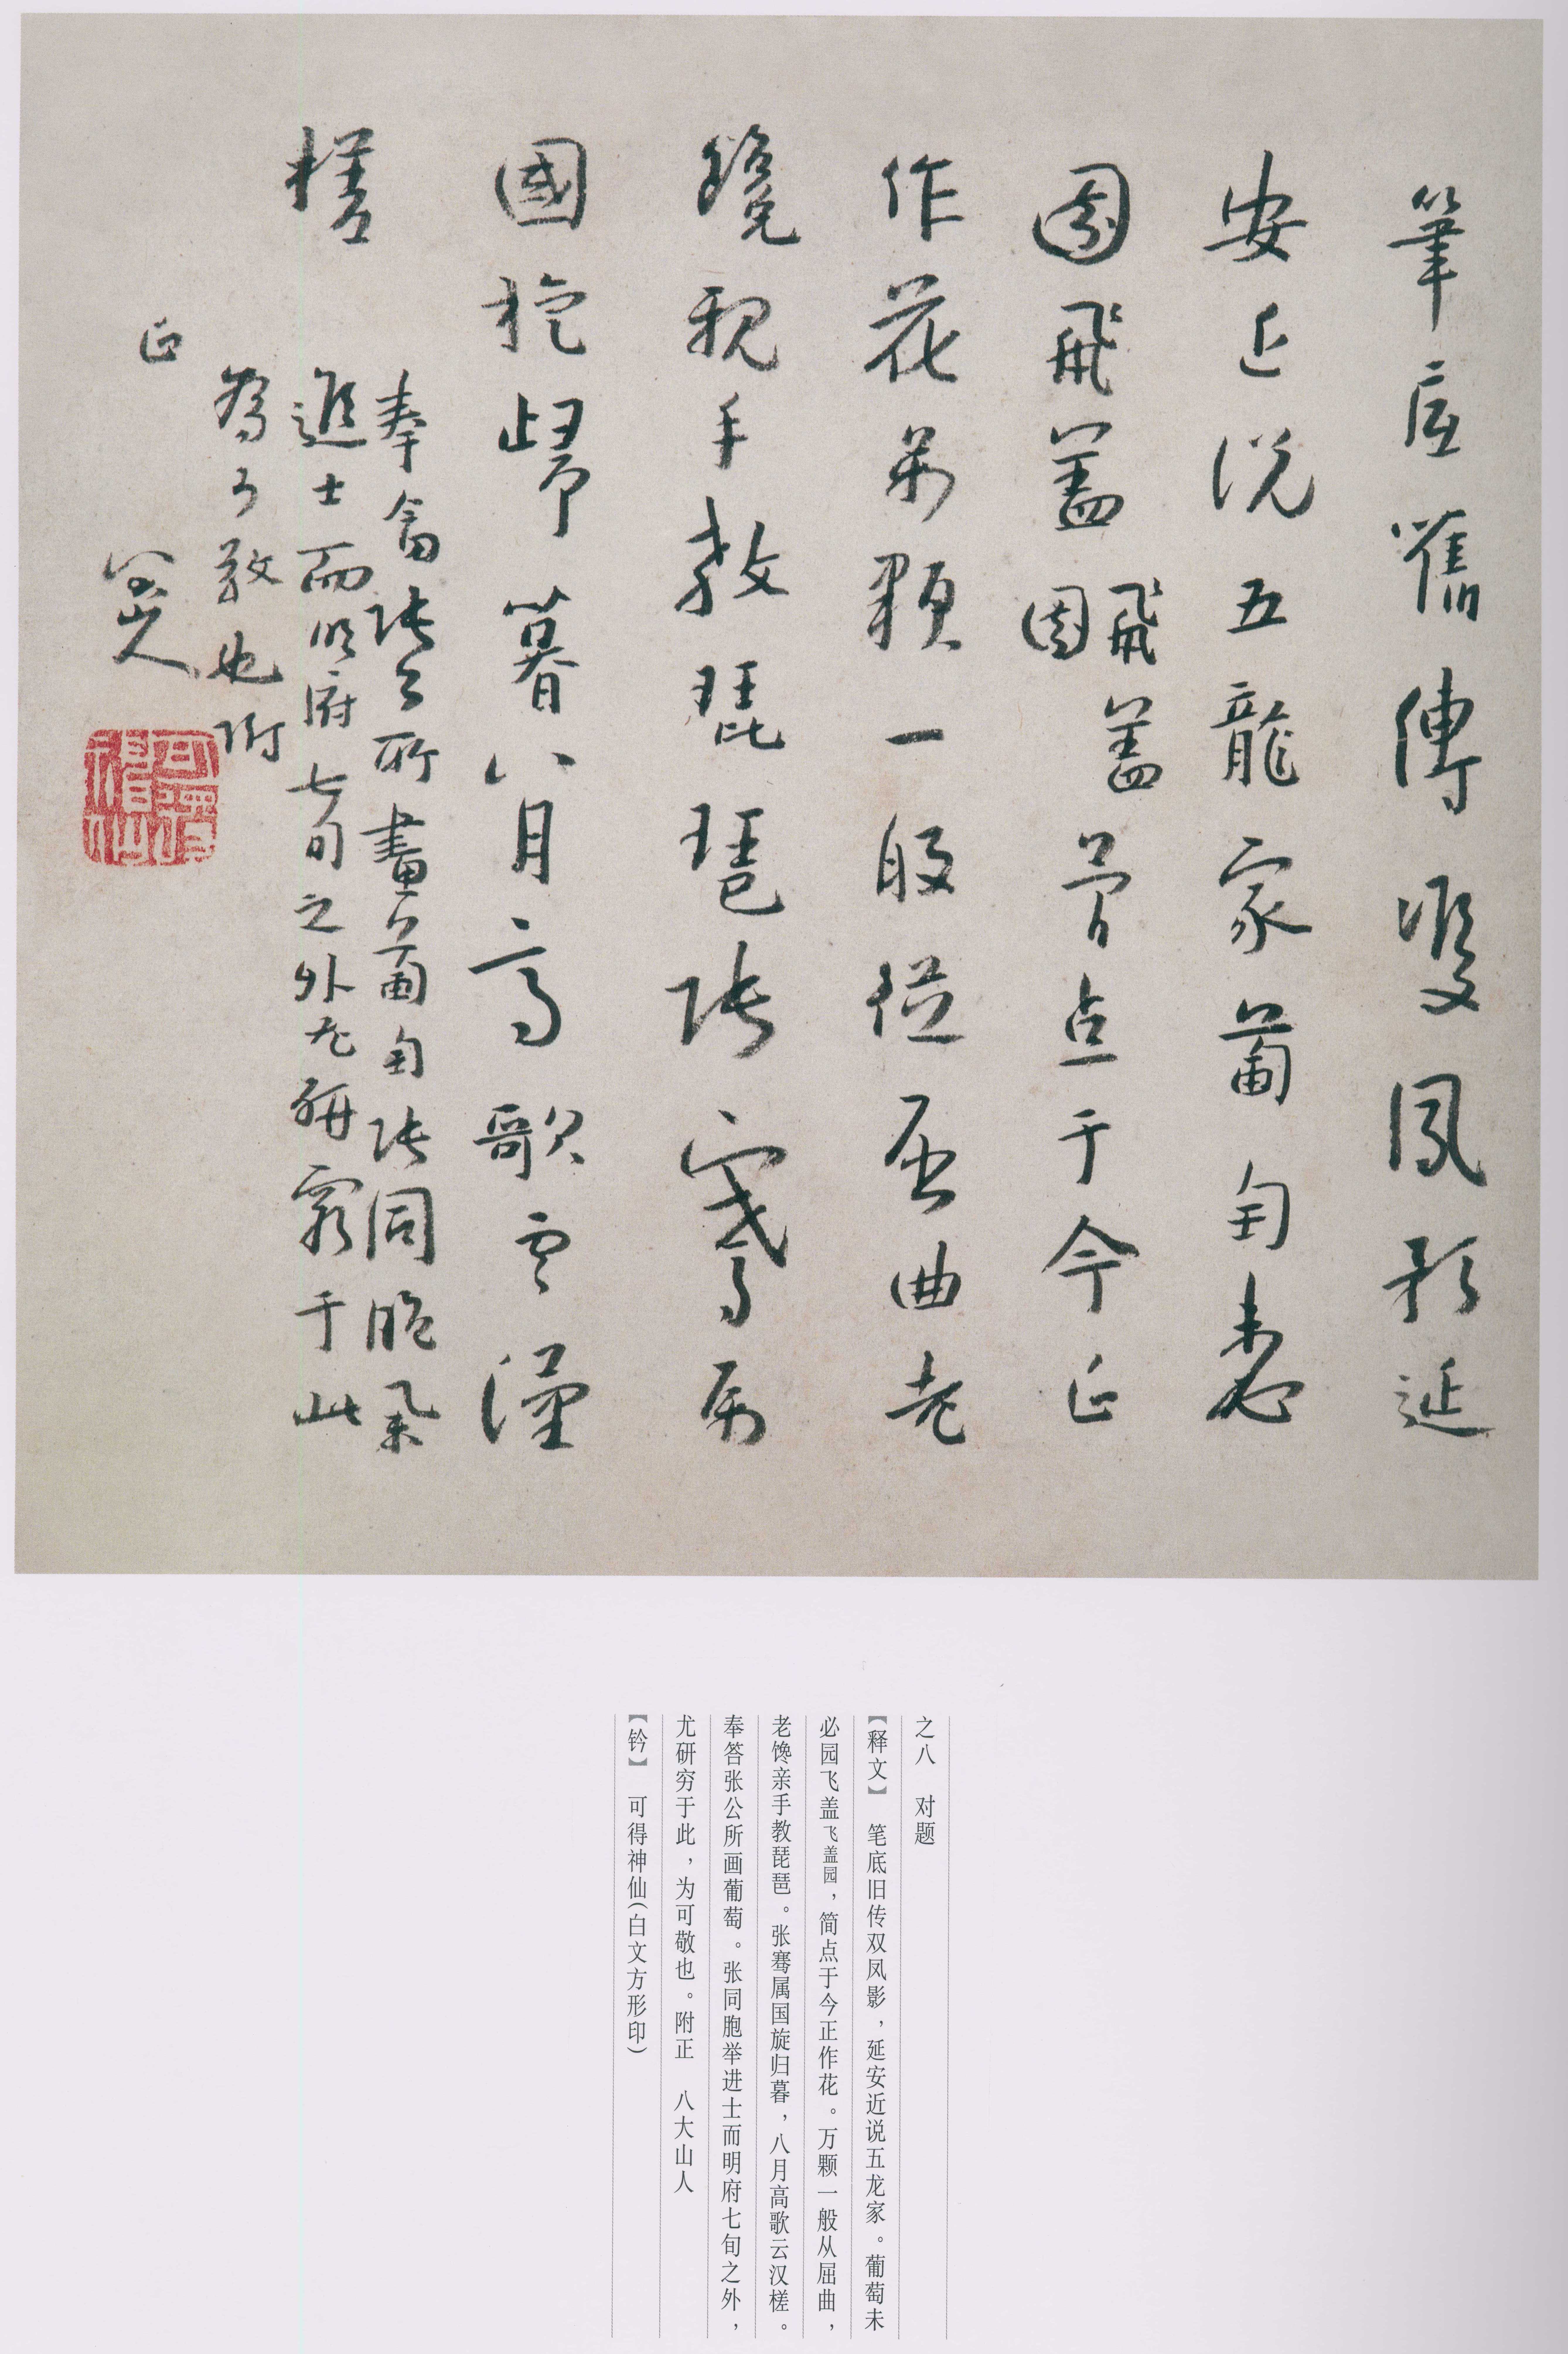 筆底舊傳雙鳳影延
安近説五龍家蔔萄未必
園飛蓋飛蓋園萠点于今正
作花萬顆一般從屈曲老
饞親手教琵琶張騫屬
國旋歸暮八月高歌雲漢
槎
奉畣張公所畫蔔萄張同胞舉
進士而明府七旬之外尤研窮于此
為可敬也附
正
八大山人
可得神仙
之八 对题
【释文】 笔底旧传双凤影，延安近说五龙家。葡萄未
必园飞盖飞盖园，简点于今正作花。万颗一般从屈曲，
老馋亲手教琵琶。张骞属国旋归暮，八月高歌云汉槎。
奉答张公所画葡萄。张同胞举进士而明府七旬之外，
尤研穷于此，为可敬也。附正 八大山人
【钤】 可得神仙（白文方形印）